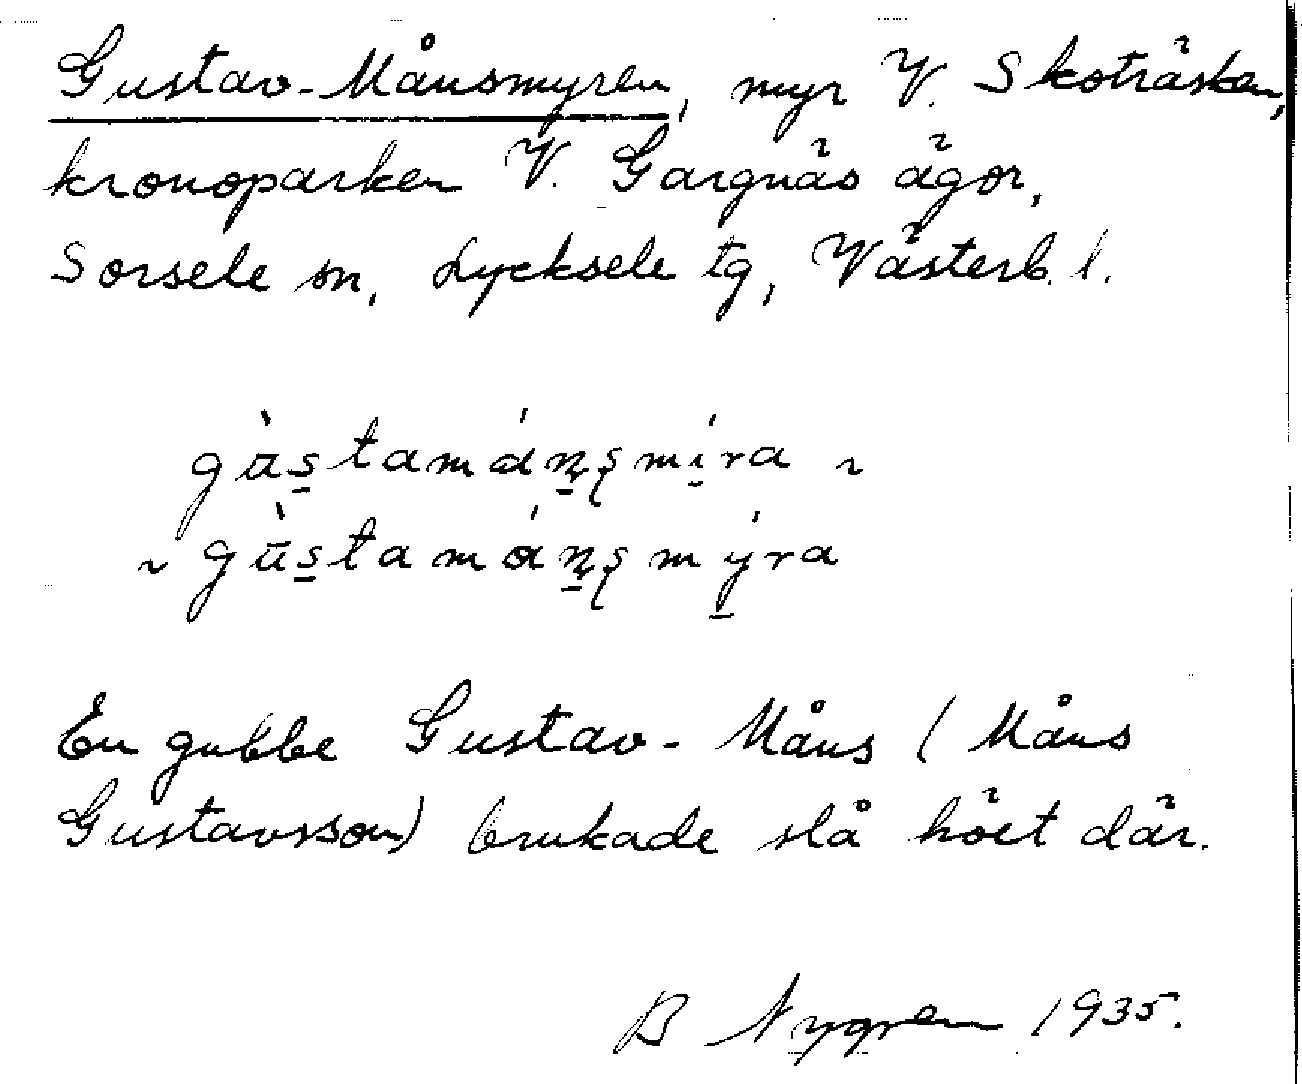 Gustav-Månsmyren, myr V. Skoträsken,
kronoparken V. Gargnäs ägor,
Sorsele sn, Lycksele tg, Västerb. l.
gùs̱tamánsmíra ~
~ gùs̱tamánsmýra
En gubbe Gustav-Måns (Måns
Gustavsson) brukade slå höet där.
B Nygren 1935.